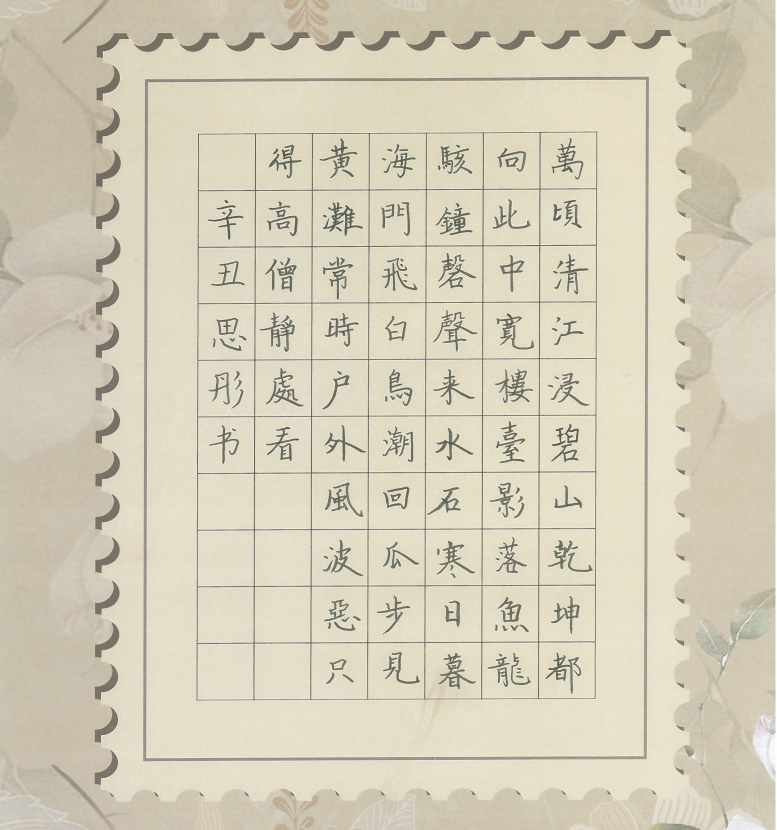 萬頃清江浸碧山乾坤都
向此中寬樓臺影落魚龍
駭鐘磬聲来水石寒日暮
海門飛白鳥潮回瓜步見
黄灘常時户外風波惡只
得高僧靜處看
辛丑思彤书